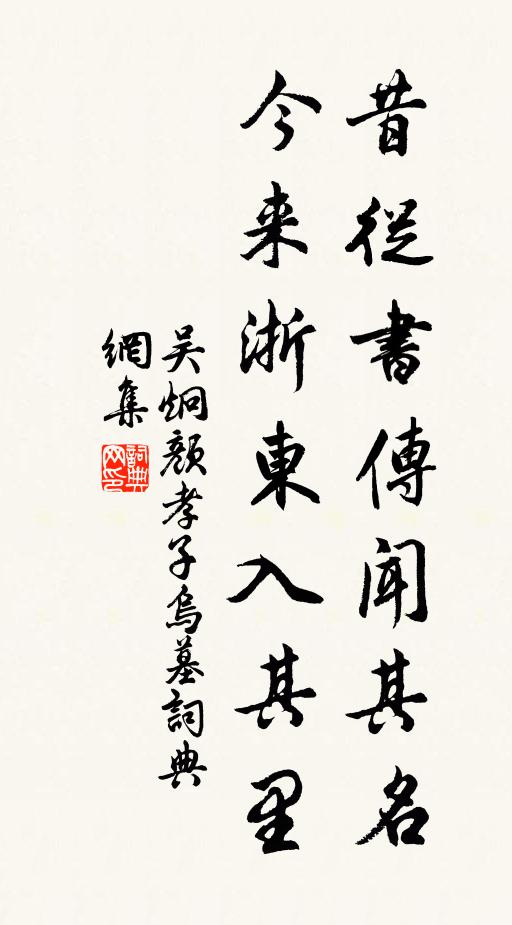 昔從書傳聞其名
今来浙東入其里
吴炯顏孝子烏墓詞典
網集
詞典網印